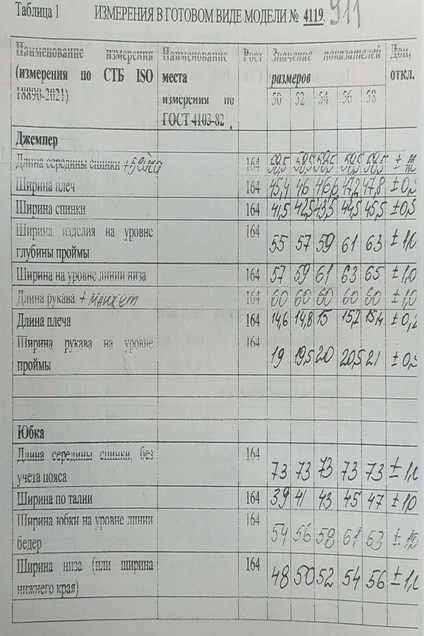 Таблица 1 ИЗМЕРЕНИЯ В ГОТОВОМ ВИДЕ МОДЕЛИ № 4119. 911
Наименование измерения (измерения по СТБ ISO 18890-2021) Наименование места измерения по ГОСТ 4103-82 Рост Значение показателей размеров Доп. откл.
50 52 54 56 58
Джемпер
Длина середины спинки 164 58,5 58,5 58,5 58,5 58,5
Ширина плеч 164 45,4 46 46,6 47,2 47,8
Ширина спинки 164 41,5 42,5 43,5 44,5 45,5 ± 0,5
Ширина изделия на уровне глубины проймы 164 55 57 59 61 63 ± 1,0
Ширина на уровне линии низа 164 57 59 61 63 65 ± 1,0
Длина рукава + манжет 164 60 60 60 60 60 ± 1,0
Длина плеча 164 14,6 14,8 15 15,2 15,4 ± 0,2
Ширина рукава на уровне проймы 164 19 19,5 20 20,5 21
Юбка
Длина середины спинки, без учета пояса 164 73 73 73 73 73 ± 1,0
Ширина по талии 164 39 41 43 45 47 ± 1,0
Ширина юбки на уровне линии бедер 164 54 56 58 61 63 ± 1,0
Ширина низа (или ширина нижнего края) 164 48 50 52 54 56 ± 1,0